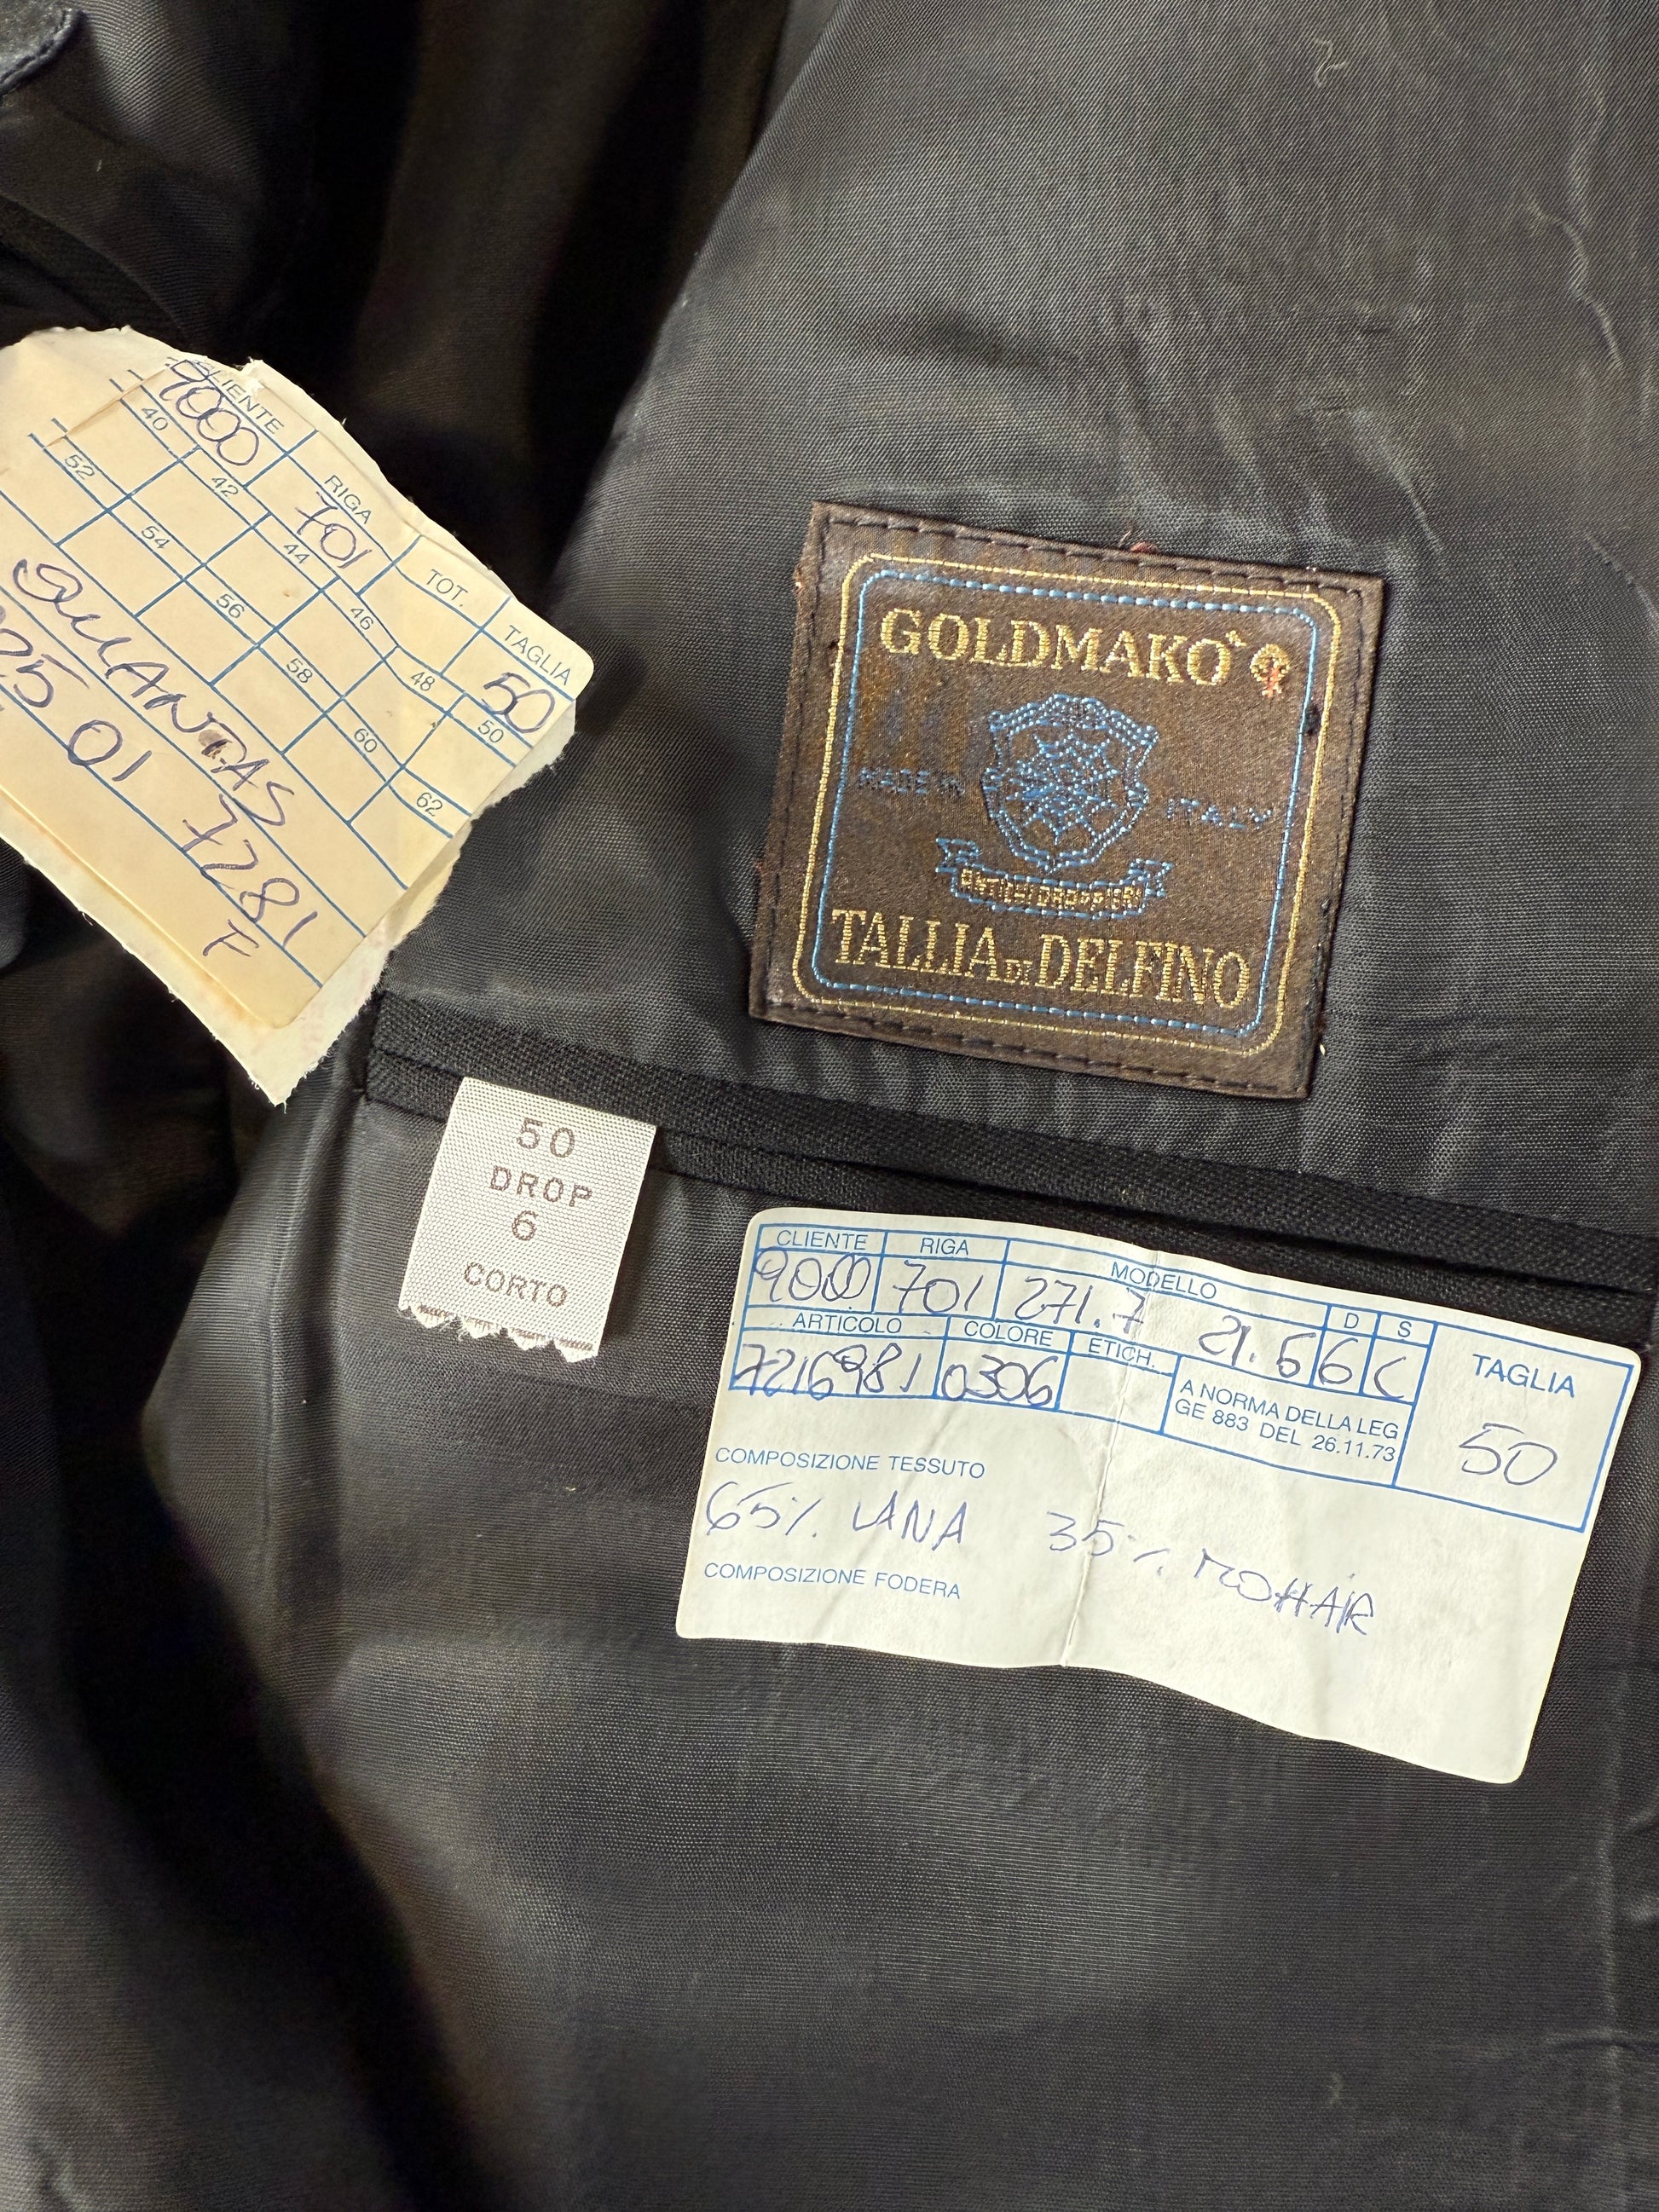 CLIENTE RIGA TOT. TAGLIA
9000 701 50
40 42 44 46 48 50
52 54 56 58 60 62
25 01 7281
F
GOLDMAKO'
MADE IN ITALY
ANTICHI DRAPPIERI
TALLIA DI DELFINO
50
DROP
6
CORTO
CLIENTE RIGA MODELLO D S TAGLIA
9000 701 271.7 21.6 6 C 50
ARTICOLO COLORE ETICH.
7216981 0306
A NORMA DELLA LEG
GE 883 DEL 26.11.73
COMPOSIZIONE TESSUTO
65% LANA 35% MOHAIR
COMPOSIZIONE FODERA